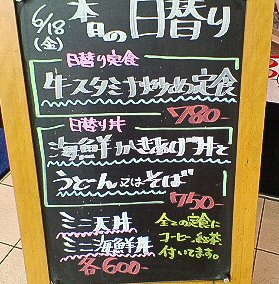 6/18
(金)
本日の日替り
日替り定食
牛スタミナ炒め定食
780-
日替り丼
海鮮かきあげ丼と
うどん又はそば
750-
ミニ天丼
ミニ海鮮丼
各600-
全ての定食に
コーヒー、紅茶
付いてます。